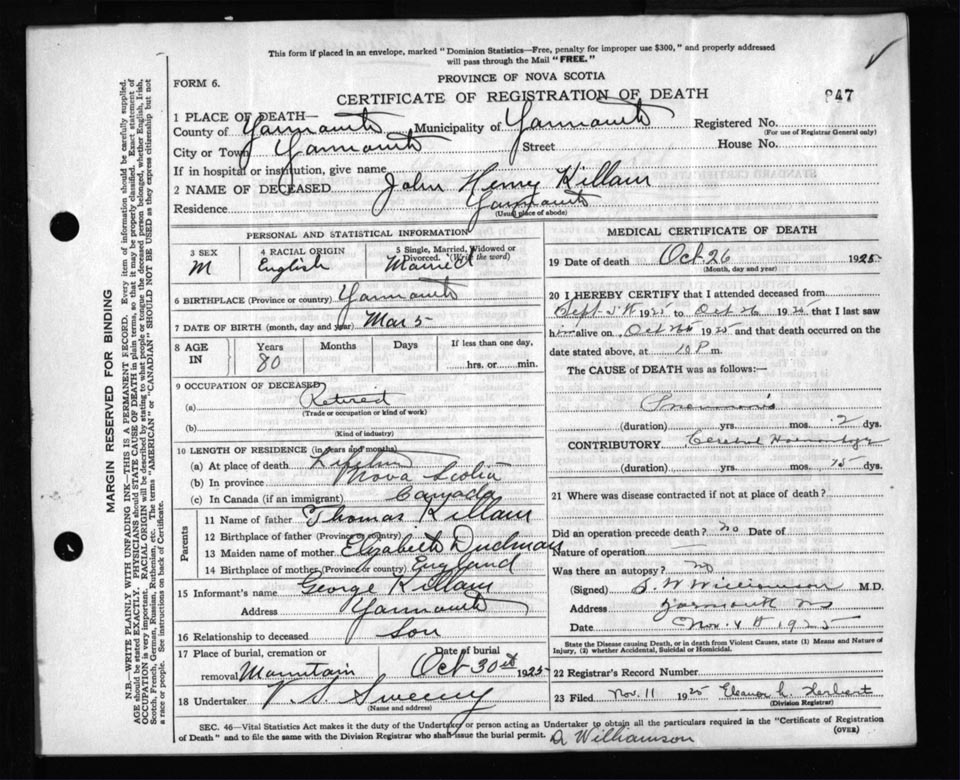 This form if placed in an envelope, marked "Dominion Statistics—Free, penalty for improper use $300," and properly addressed
will pass through the Mail "FREE."
FORM 6.
PROVINCE OF NOVA SCOTIA
CERTIFICATE OF REGISTRATION OF DEATH
847
1 PLACE OF DEATH—
County of Yarmouth Municipality of Yarmouth Registered No.
(For use of Registrar General only)
City or Town Yarmouth Street House No.
If in hospital or institution, give name
2 NAME OF DECEASED John Henry Killam
Residence Yarmouth
(Usual place of abode)
PERSONAL AND STATISTICAL INFORMATION
3 SEX M
4 RACIAL ORIGIN English
5 Single, Married, Widowed or Divorced. (Write the word) Married
6 BIRTHPLACE (Province or country) Yarmouth
7 DATE OF BIRTH (month, day and year) Mar 5
8 AGE IN Years 80 Months Days If less than one day, hrs. or min.
9 OCCUPATION OF DECEASED
(a) Retired
(Trade or occupation or kind of work)
(b)
(Kind of industry)
10 LENGTH OF RESIDENCE (in years and months)
(a) At place of death Lifetime
(b) In province Nova Scotia
(c) In Canada (if an immigrant) Canada
Parents
11 Name of father Thomas Killam
12 Birthplace of father (Province or country)
13 Maiden name of mother Elizabeth Dudman
14 Birthplace of mother (Province or country) England
15 Informant's name George Killam
Address Yarmouth
16 Relationship to deceased Son
17 Place of burial, cremation or removal Mountain
Date of burial Oct 30th 1925
18 Undertaker V. S. Sweeny
(Name and address)
MEDICAL CERTIFICATE OF DEATH
19 Date of death Oct. 26 1925
(Month, day and year)
20 I HEREBY CERTIFY that I attended deceased from
Sept 1925 to Oct 26 1925, that I last saw
him alive on Oct 26 1925 and that death occurred on the
date stated above, at P m.
The CAUSE of DEATH was as follows:—
Pneumonia
(duration) yrs. mos. 2 dys.
CONTRIBUTORY Cerebral Haemorrhage
(duration) yrs. mos. 15 dys.
21 Where was disease contracted if not at place of death?
Did an operation precede death? no Date of
Nature of operation
Was there an autopsy? no
(Signed) S. W Williamson M.D.
Address Yarmouth NS
Date Nov. 4th 1925
State the Disease causing Death, or in death from Violent Causes, state (1) Means and Nature of
Injury, (2) whether Accidental, Suicidal or Homicidal.
22 Registrar's Record Number
23 Filed Nov. 11 1925 Eleanor L. Herbert
(Division Registrar)
SEC. 46—Vital Statistics Act makes it the duty of the Undertaker or person acting as Undertaker to obtain all the particulars required in the "Certificate of Registration
of Death" and to file the same with the Division Registrar who shall issue the burial permit.
(OVER)
Williamson
MARGIN RESERVED FOR BINDING
N.B.—WRITE PLAINLY WITH UNFADING INK—THIS IS A PERMANENT RECORD. Every item of information should be carefully supplied.
AGE should be stated EXACTLY. PHYSICIANS should STATE CAUSE OF DEATH in plain terms, so that it may be properly classified. Exact statement of
OCCUPATION is very important. RACIAL ORIGIN will be described by stating to what people or race the deceased person belonged, whether English, Irish,
Scotch, French, German, Russian, Ruthenian, etc. The terms "AMERICAN" or "CANADIAN" SHOULD NOT BE USED as they express citizenship but not
a race or people. See instructions on back of Certificate.